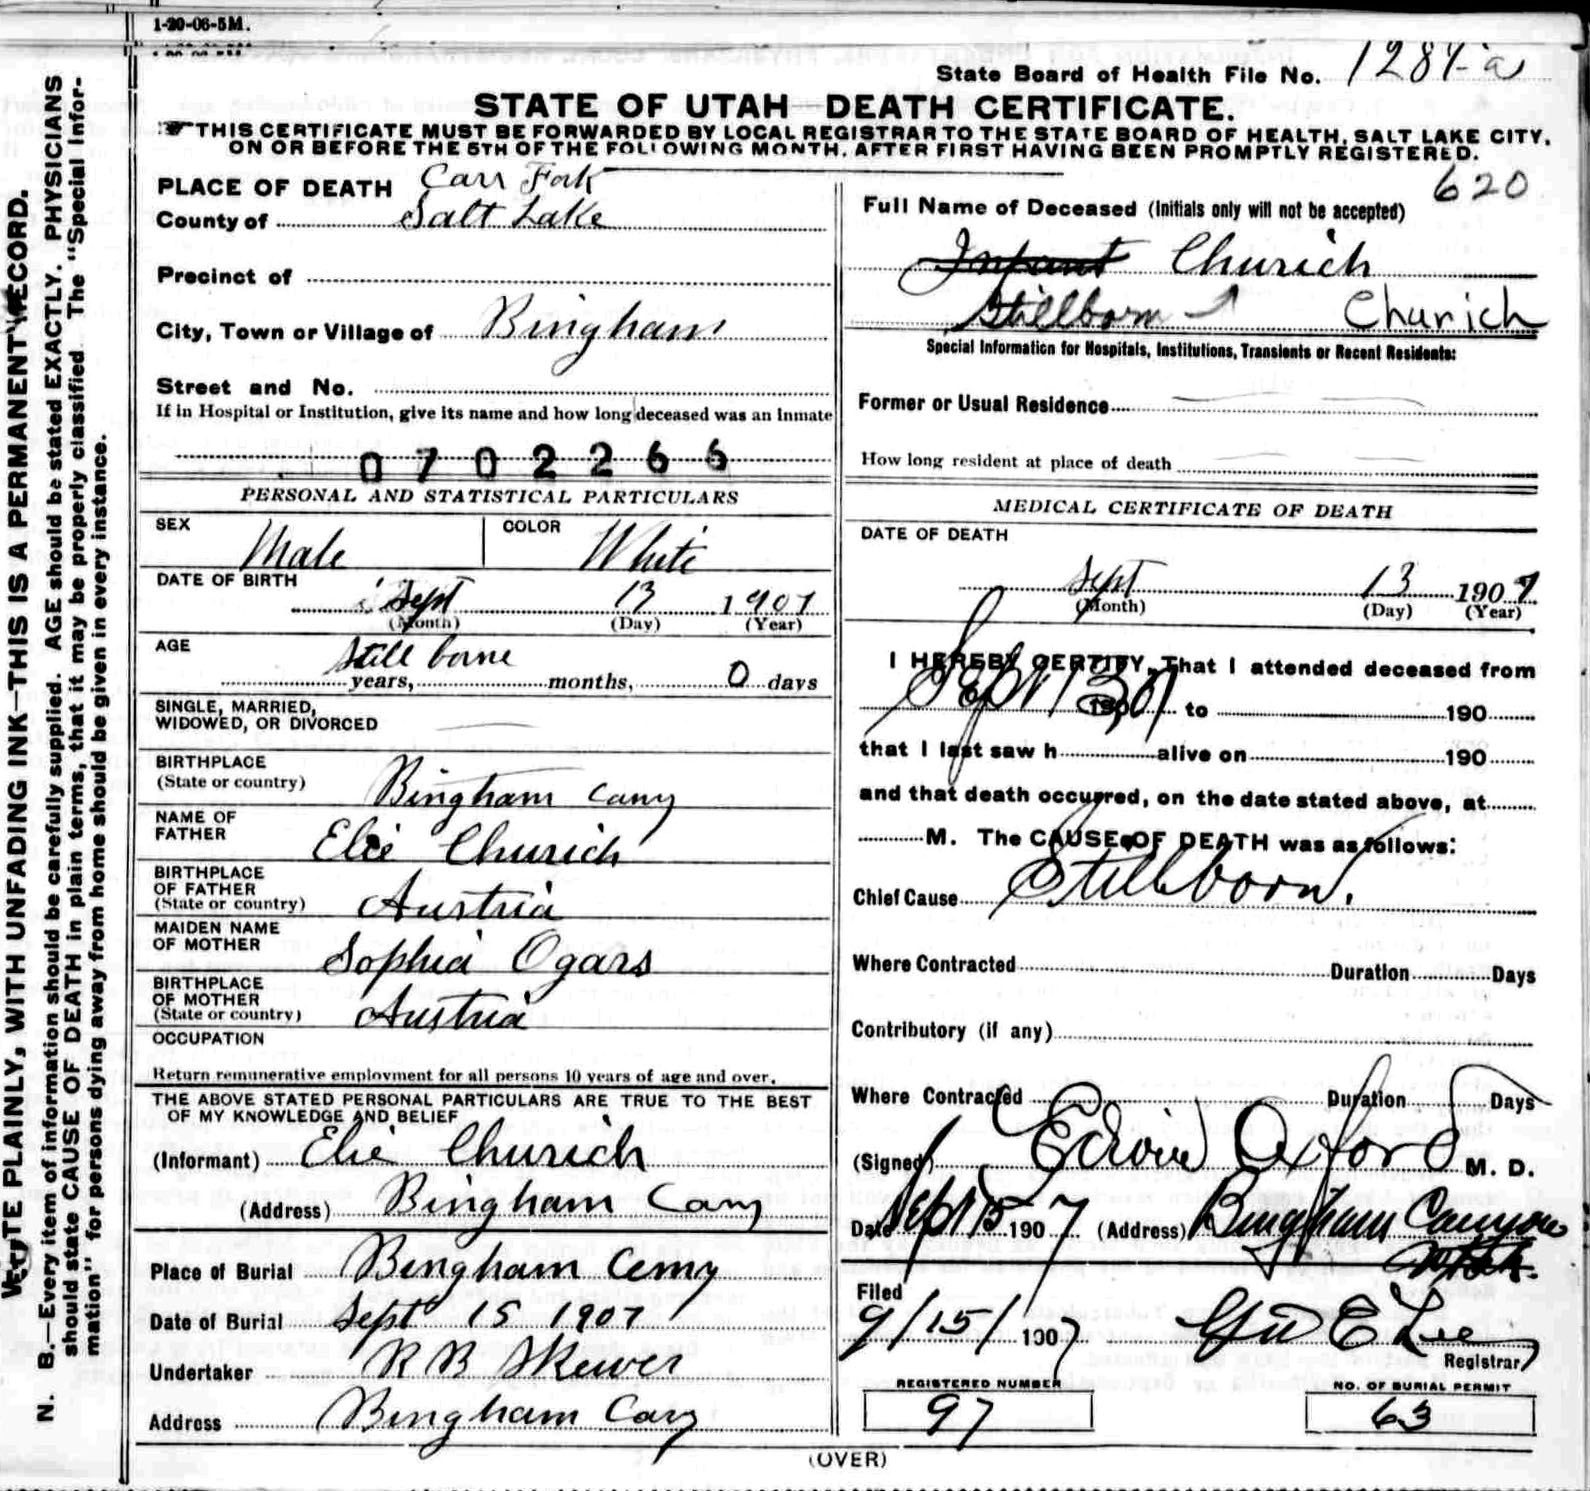 1-20-06-5M.
WRITE PLAINLY, WITH UNFADING INK—THIS IS A PERMANENT RECORD.
N. B.—Every item of information should be carefully supplied. AGE should be stated EXACTLY. PHYSICIANS
should state CAUSE OF DEATH in plain terms, that it may be properly classified. The "Special Infor-
mation" for persons dying away from home should be given in every instance.
State Board of Health File No. 1284-a
STATE OF UTAH—DEATH CERTIFICATE.
☞ THIS CERTIFICATE MUST BE FORWARDED BY LOCAL REGISTRAR TO THE STATE BOARD OF HEALTH, SALT LAKE CITY,
ON OR BEFORE THE 5TH OF THE FOLLOWING MONTH, AFTER FIRST HAVING BEEN PROMPTLY REGISTERED.
620
PLACE OF DEATH Carr Fork
County of Salt Lake
Precinct of
City, Town or Village of Bingham
Street and No.
If in Hospital or Institution, give its name and how long deceased was an inmate
0702266
PERSONAL AND STATISTICAL PARTICULARS
SEX Male COLOR White
DATE OF BIRTH Sept 13 1907
(Month) (Day) (Year)
AGE Still borne
years, months, 0 days
SINGLE, MARRIED,
WIDOWED, OR DIVORCED
BIRTHPLACE
(State or country) Bingham Cany
NAME OF
FATHER Elie Churich
BIRTHPLACE
OF FATHER
(State or country) Austria
MAIDEN NAME
OF MOTHER Sophia Ogars
BIRTHPLACE
OF MOTHER
(State or country) Austria
OCCUPATION
Return remunerative employment for all persons 10 years of age and over.
THE ABOVE STATED PERSONAL PARTICULARS ARE TRUE TO THE BEST
OF MY KNOWLEDGE AND BELIEF
(Informant) Elie Churich
(Address) Bingham Cany
Place of Burial Bingham Cemy
Date of Burial Sept 15 1907
Undertaker R B Skewer
Address Bingham Cany
Full Name of Deceased (Initials only will not be accepted)
Infant Churich
Stillborn Churich
Special Information for Hospitals, Institutions, Transients or Recent Residents:
Former or Usual Residence
How long resident at place of death
MEDICAL CERTIFICATE OF DEATH
DATE OF DEATH
Sept 13 1907
(Month) (Day) (Year)
I HEREBY CERTIFY, That I attended deceased from
Sept 13, 07 190 to 190
that I last saw h alive on 190
and that death occurred, on the date stated above, at
M. The CAUSE OF DEATH was as follows:
Chief Cause Stillborn.
Where Contracted Duration Days
Contributory (if any)
Where Contracted Duration Days
(Signed) Edwin Oxford M. D.
Date Sept 15 1907 (Address) Bingham Canyon
Utah.
Filed
9/15/1907 Geo E Lee
Registrar
REGISTERED NUMBER
97
NO. OF BURIAL PERMIT
63
(OVER)